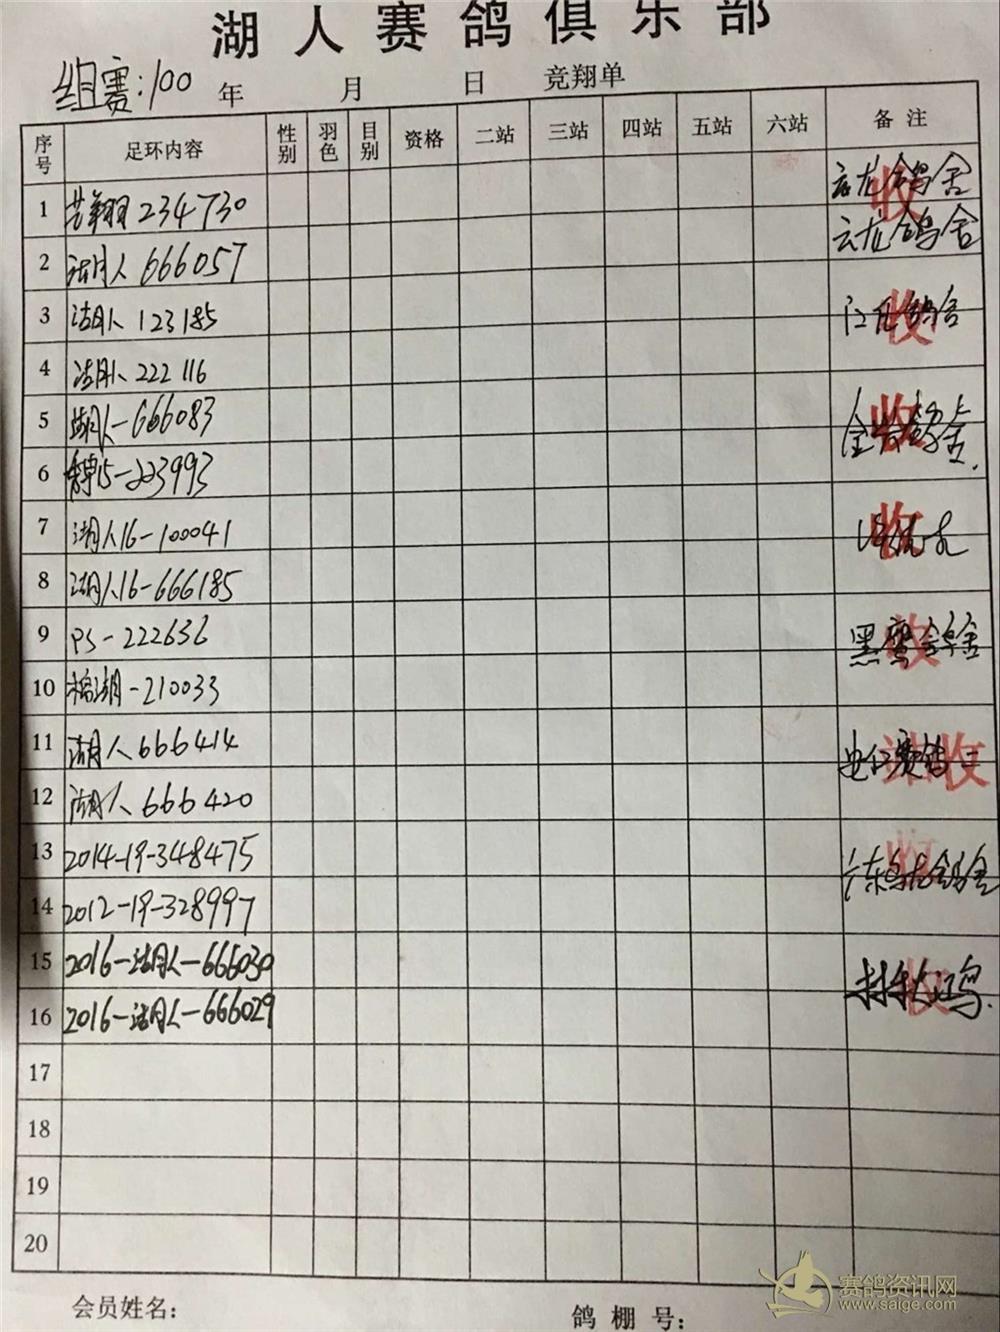 湖人赛鸽俱乐部
组赛:100 年 月 日 竞翔单
序号 足环内容 性别 羽色 目别 资格 二站 三站 四站 五站 六站 备注
1 翔 234730 云龙鸽舍 收
2 湖人 666057 云龙鸽舍
3 湖人 123185 鸽舍 收
4 湖人 222116
5 湖人-666083 收
6 15-203993
7 湖人16-100041 收
8 湖人16-666185
9 PS-222636 黑鹰鸽舍 收
10 湖-210033
11 湖人 666414 赛鸽 收
12 湖人 666420
13 2014-19-348475 鸽舍 收
14 2012-19-328997
15 2016-湖人-666030 收
16 2016-湖人-666029
17
18
19
20
会员姓名: 鸽棚号:
赛鸽资讯网
www.saige.com